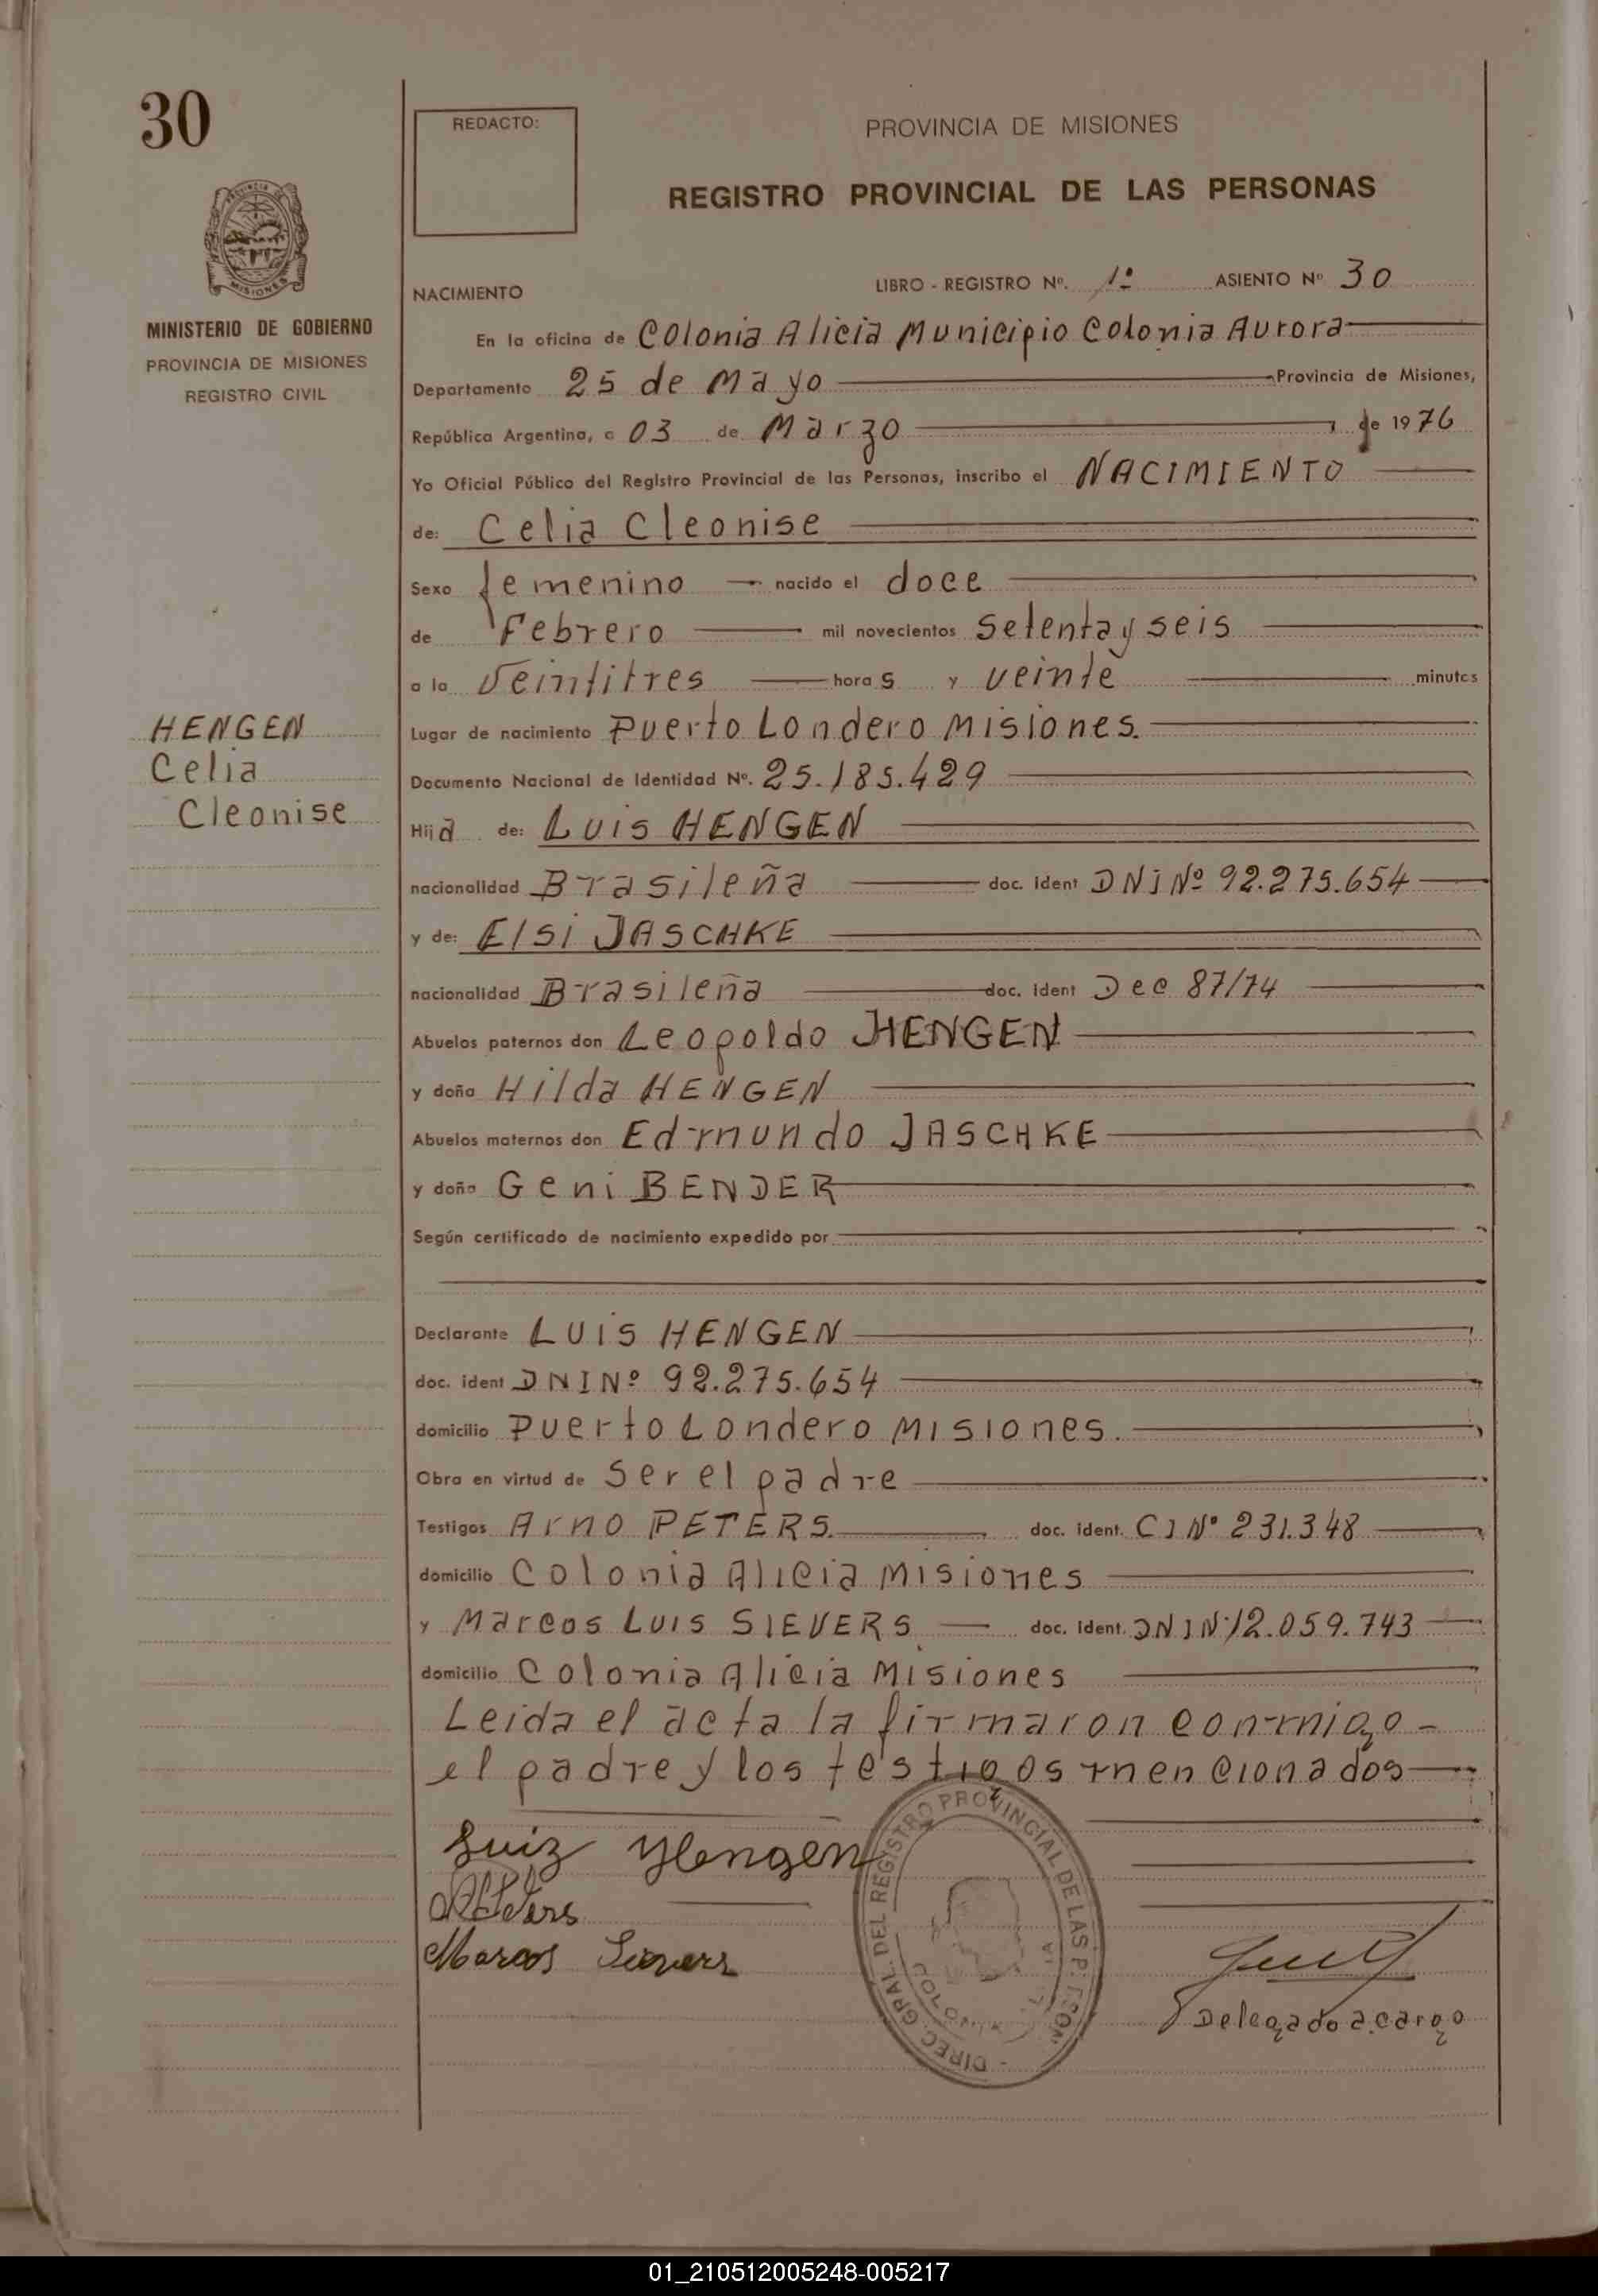 30
REDACTO:
PROVINCIA DE MISIONES
REGISTRO PROVINCIAL DE LAS PERSONAS
MISIONES
MINISTERIO DE GOBIERNO
PROVINCIA DE MISIONES
REGISTRO CIVIL
HENGEN
Celia
Cleonise
NACIMIENTO
LIBRO - REGISTRO Nº. 1º ASIENTO Nº 30
En la oficina de Colonia Alicia Municipio Colonia Aurora
Departamento 25 de Mayo Provincia de Misiones,
República Argentina, a 03 de Marzo de 1976
Yo Oficial Público del Registro Provincial de las Personas, inscribo el NACIMIENTO
de: Celia Cleonise
Sexo femenino nacido el doce
de Febrero mil novecientos Setenta y seis
a la Veintitres horas y veinte minutos
Lugar de nacimiento Puerto Londero Misiones.
Documento Nacional de Identidad Nº. 25.185.429
Hija de: Luis HENGEN
nacionalidad Brasileña doc. ident DNI Nº 92.275.654
y de: Elsi JASCHKE
nacionalidad Brasileña doc. ident Dec 87/74
Abuelos paternos don Leopoldo HENGEN
y doña Hilda HENGEN
Abuelos maternos don Edmundo JASCHKE
y doña Geni BENDER
Según certificado de nacimiento expedido por
Declarante LUIS HENGEN
doc. ident DNI Nº 92.275.654
domicilio Puerto Londero Misiones.
Obra en virtud de Ser el padre
Testigos Arno PETERS. doc. ident. CI Nº 231.348
domicilio Colonia Alicia Misiones
y Marcos Luis SIEVERS doc. ident. DNI Nº 12.059.743
domicilio Colonia Alicia Misiones
Leida el acta la firmaron conmigo -
el padre y los testigos mencionados
Luiz Hengen
Peters
Marcos Sievers
DIREC. GRAL. DEL REGISTRO PROVINCIAL DE LAS PERSON
COLONIA
Delegado a cargo
01_210512005248-005217